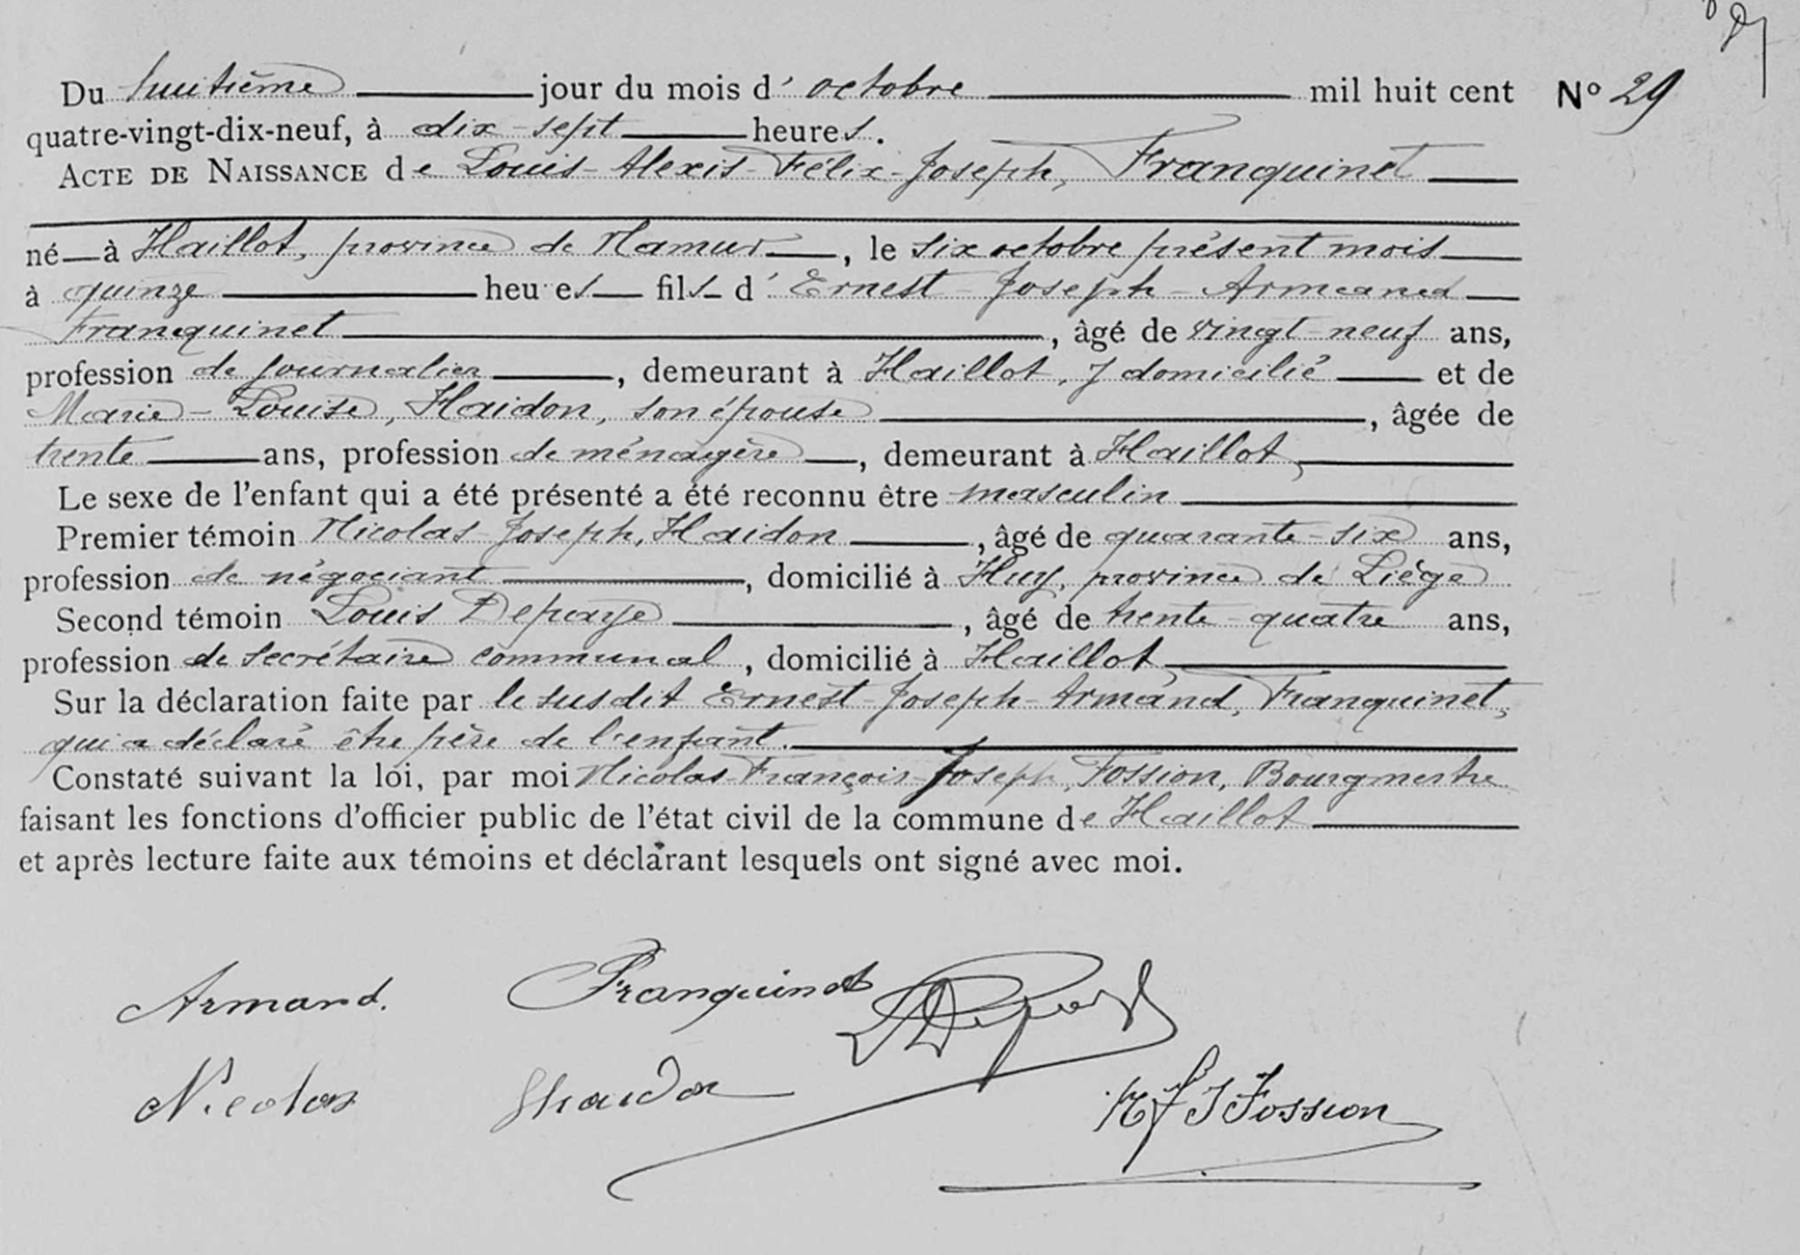 Du huitième jour du mois d'octobre mil huit cent Nº 29
quatre-vingt-dix-neuf, à dix-sept heures.
ACTE DE NAISSANCE de Louis-Alexis-Félix-Joseph, Franquinet
né à Haillot, province de Namur, le six octobre présent mois
à quinze heures fils d'Ernest-Joseph-Armand
Franquinet, âgé de vingt-neuf ans,
profession de journalier, demeurant à Haillot, y domicilié et de
Marie-Louise, Haidon, son épouse, âgée de
trente ans, profession de ménagère, demeurant à Haillot,
Le sexe de l'enfant qui a été présenté a été reconnu être masculin
Premier témoin Nicolas-Joseph, Haidon, âgé de quarante-six ans,
profession de négociant, domicilié à Huy, province de Liége
Second témoin Louis Depaye, âgé de trente-quatre ans,
profession de secrétaire communal, domicilié à Haillot,
Sur la déclaration faite par le susdit Ernest-Joseph-Armand, Franquinet,
qui a déclaré être père de l'enfant.
Constaté suivant la loi, par moi Nicolas-François-Joseph, Fossion, Bourgmestre
faisant les fonctions d'officier public de l'état civil de la commune de Haillot
et après lecture faite aux témoins et déclarant lesquels ont signé avec moi.
Armand. Franquinet LDepaye
Nicolas
N f J Fossion